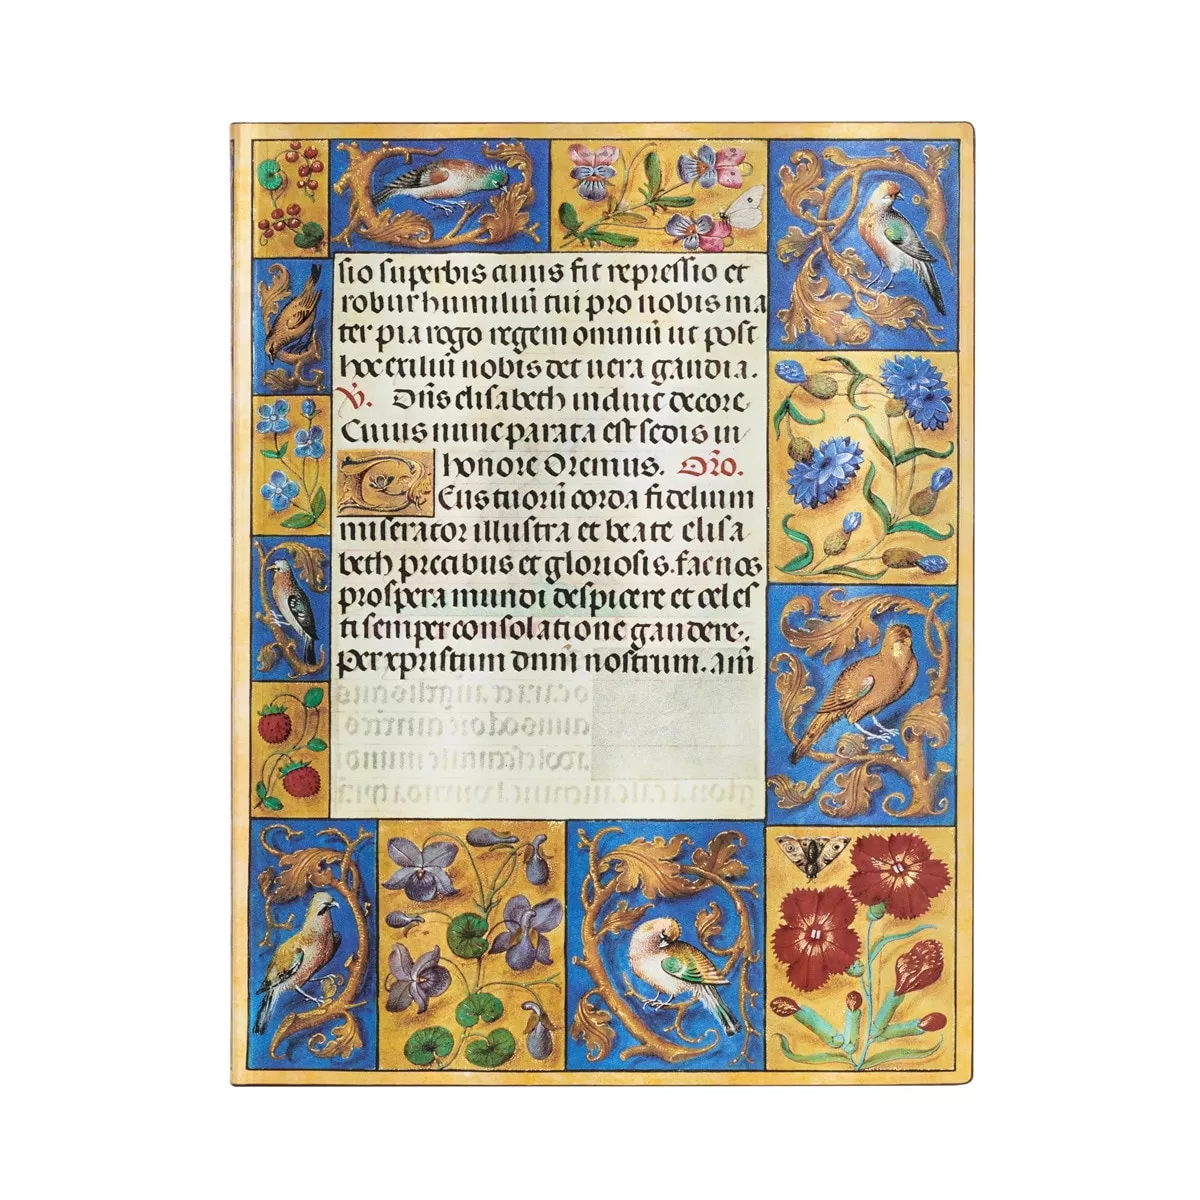 sio superbis cuius fit repressio et
robur humiliū tui pro nobis ma
ter pia rogo regem omniū ut post
hoc exiliū nobis det uera gaudia.
V. Dn̄s elisabeth induit decore.
Cuius nunc parata est sedis in
honore Oremus. Or̄o.
Eus tuorū corda fidelium
miserator illustra et beate elisa
beth precibus et gloriosis. fac nos
prospera mundi despicere et celes
ti semper consolatione gaudere.
Per xpristum dnm̄ nostrum. am̄